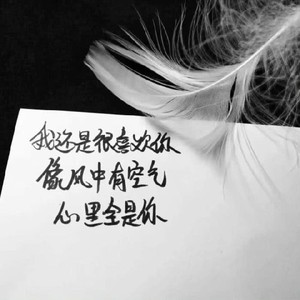 我还是很喜欢你
像风中有空气
心里全是你